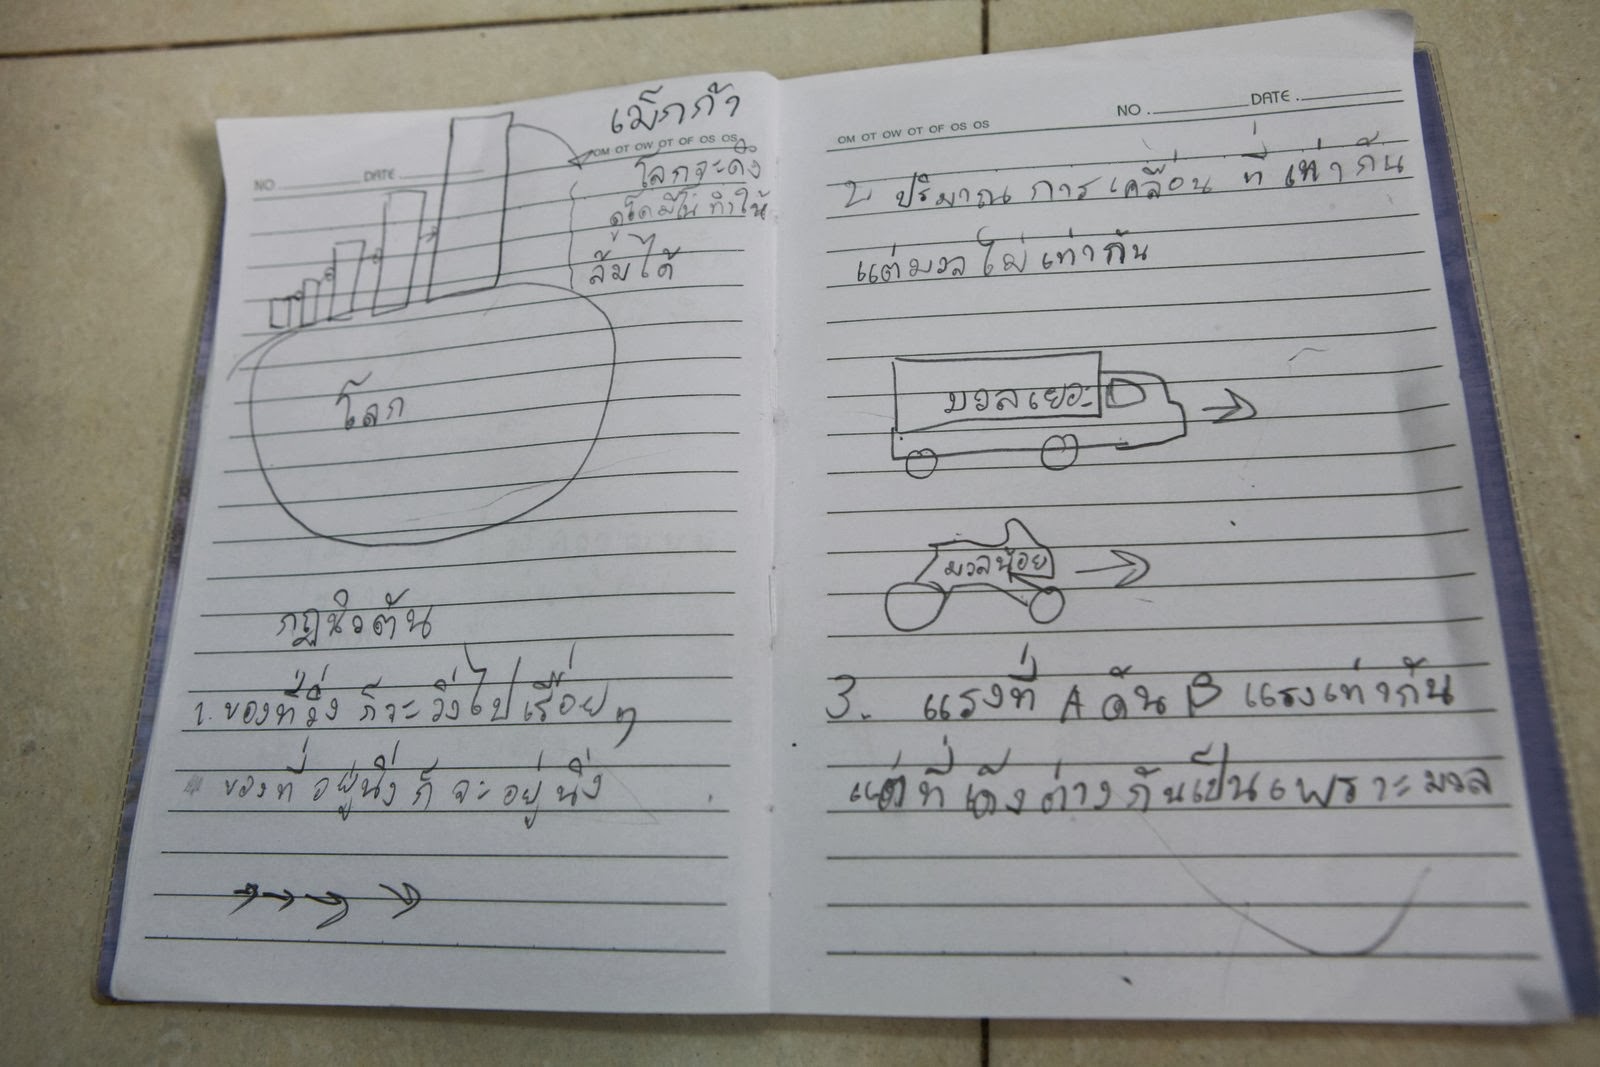 เม็กก้า
OM OT OW OT OF OS OS
NO DATE
โลกจะดึง
ดูดโดมิโน่ ทำให้
ล้มได้
โลก
กฎนิวตัน
1. ของที่วิ่ง ก็จะ วิ่งไปเรื่อย ๆ
ของที่ อยู่นิ่ง ก็ จะ อยู่ นิ่ง
OM OT OW OT OF OS OS
NO. DATE.
2 ปริมาณ การ เคลื่อน ที่ เท่ากัน
แต่มวล ไม่ เท่ากัน
มวลเยอะ
มวลน้อย
3. แรงที่ A ดัน B แรงเท่ากัน
แต่ที่ เด้ง ต่าง กันเป็น เพราะ มวล